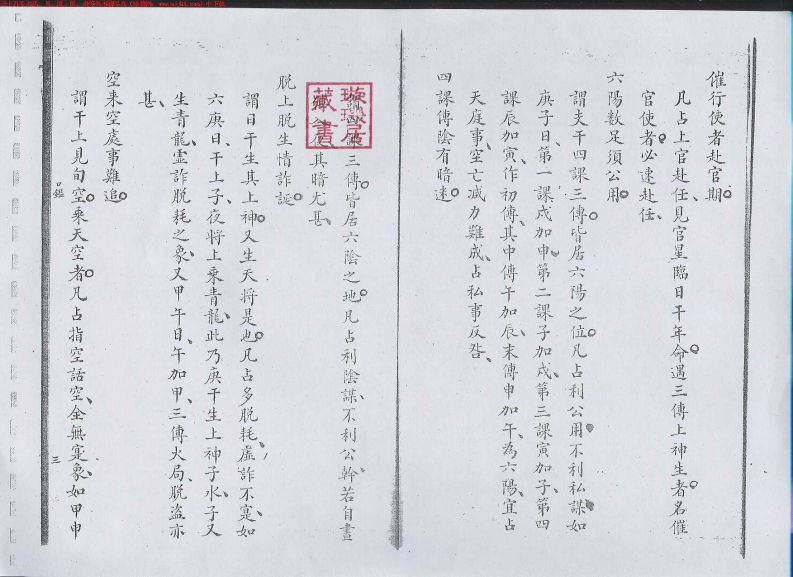 催行使者赴官期。
凡占上官赴任、見官星臨日干年命。遇三傳上神生者。名催
官使者。必速赴任、
六陽數足須公用。
謂支干四課三傳。皆居六陽之位。凡占利公用不利私謀如
庚子日、第一課戌加申、第二課子加戌、第三課寅加子、第四
課辰加寅、作初傳、其中傳午加辰、末傳申加午、為六陽、宜占
天庭事、空亡減力難成、占私事反咎、
四課傳陰有暗迷。
三傳。皆居六陰之地。凡占利陰謀、不利公幹若自晝
其暗尤甚、
脫上脫生情詐誕。
謂日干生其上神。又生天將是也。凡占多脫耗、虛詐不寔、如
六庚日、干上子、夜將上乘青龍、此乃庚干生上神子水、子又
生青龍、虛詐脫耗之象、又甲午日、午加甲、三傳火局、脫盜亦
甚、
空来空處事難追。
謂干上見旬空。乘天空者。凡占指空話空、全無寔象、如甲申
鑑
三
璇璣居藏書